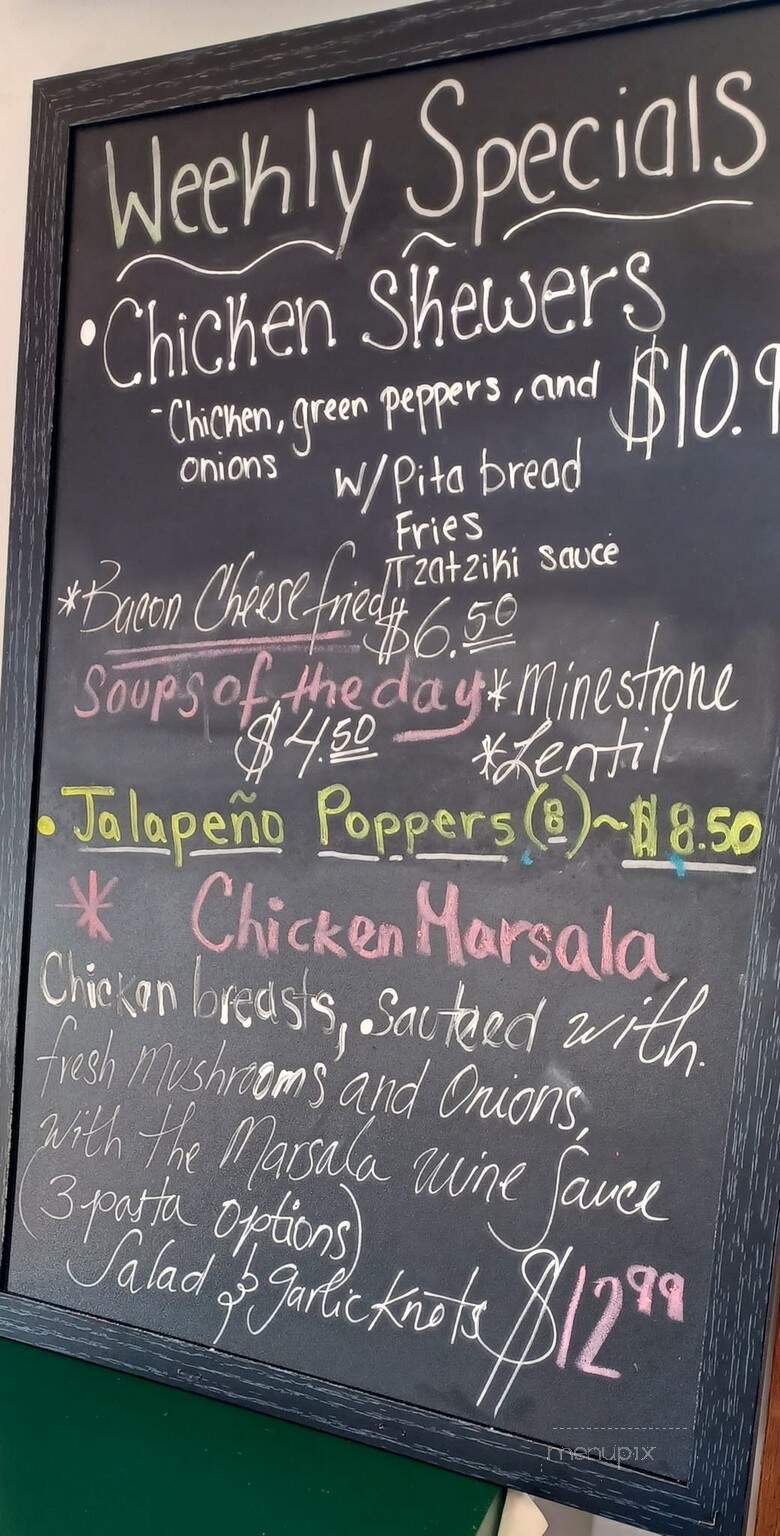 Weekly Specials
• Chicken Skewers
- Chicken, green peppers, and $10.9
onions
w/ Pita bread
Fries
Tzatziki sauce
*Bacon Cheese fried $6.50
Soups of the day *Minestrone
$4.50 *Lentil
• Jalapeño Poppers (8) ~ $8.50
* Chicken Marsala
Chicken breasts, sauteed with
fresh Mushrooms and Onions,
with the Marsala wine sauce
(3 pasta options)
Salad & garlic knots $12.99
menupix